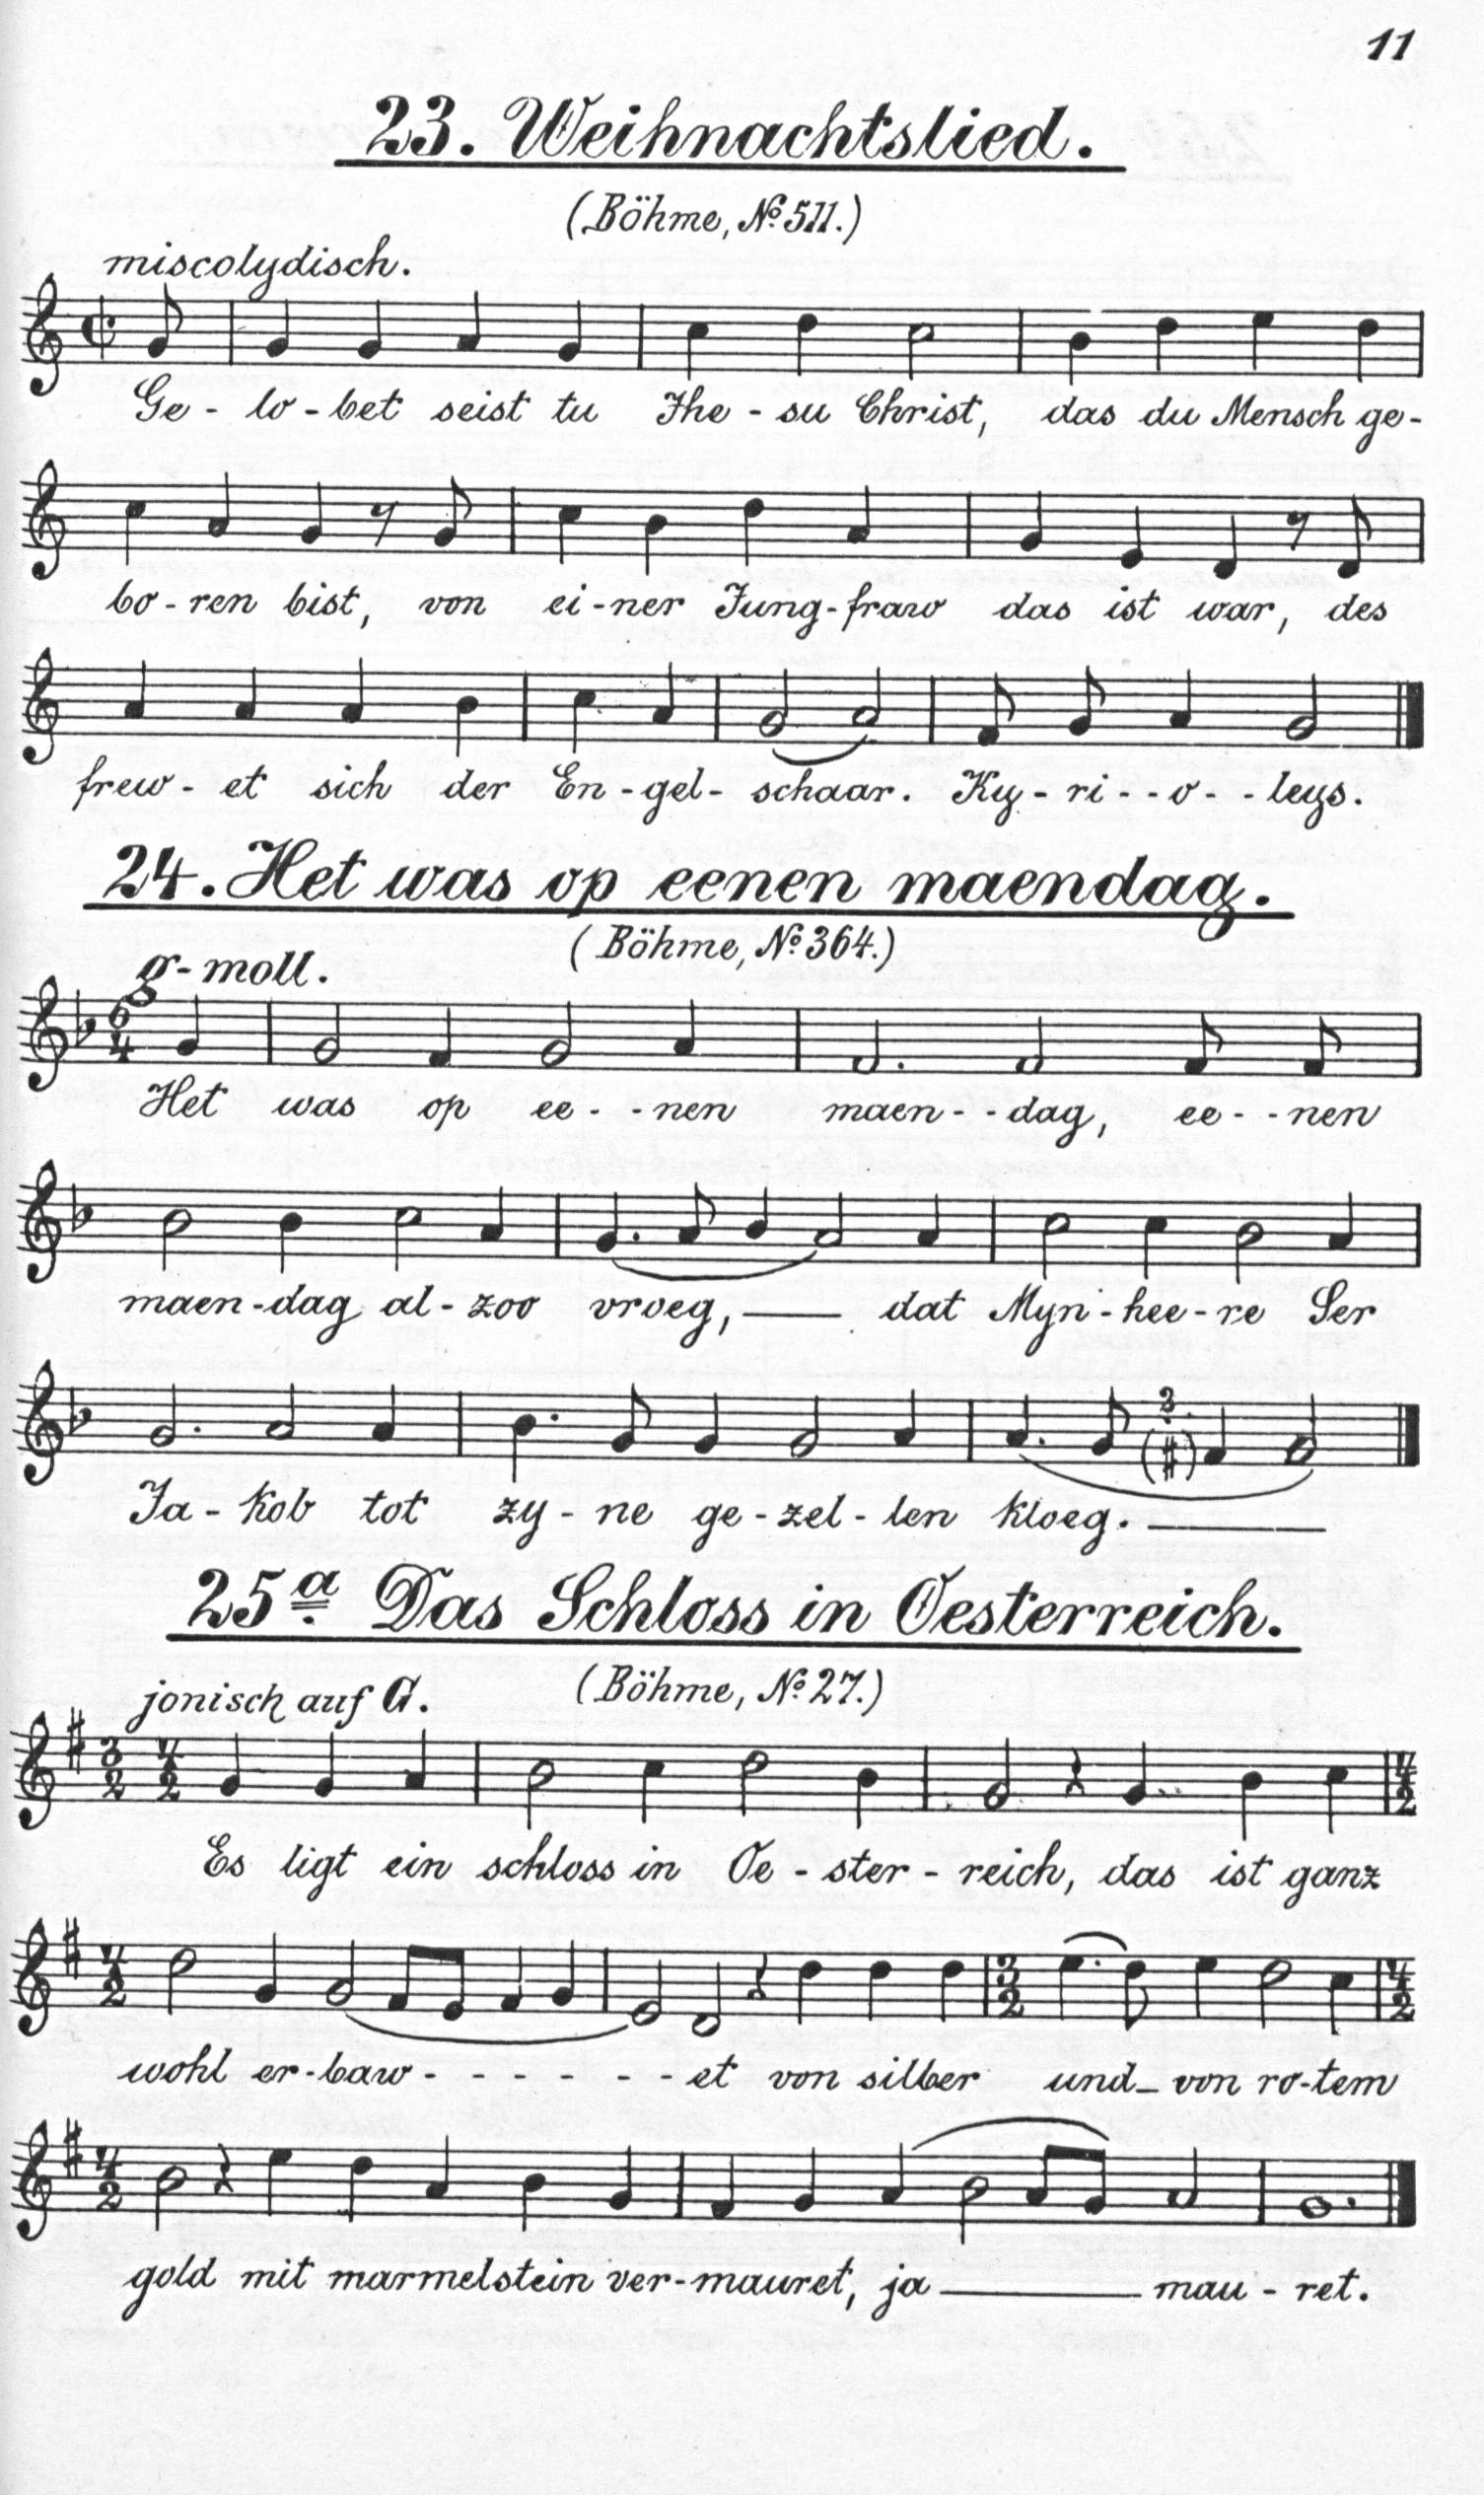 11
23. Weihnachtslied.
(Böhme, No. 511.)
miscolydisch.
Ge - lo - bet seist tu Jhe - su Christ, das du Mensch ge-
bo - ren bist, von ei - ner Jung - fraw das ist war, des
frew - et sich der En - gel - schaar. Ky - ri - - o - - leys.
24. Het was op eenen maendag.
(Böhme, No. 364.)
g-moll.
6 4
Het was op ee - - nen maen - - dag, ee - - nen
maen - dag al - zoo vroeg, dat Myn - hee - re Ser
3 (#)
Ja - kob tot zy - ne ge - zel - len kloeg.
25a. Das Schloss in Oesterreich.
(Böhme, No. 27.)
jonisch auf G.
3 2 4 2 4 2
Es ligt ein schloss in Oe - ster - reich, das ist ganz
4 2 3 2 4 2
wohl er - baw - - - - - - et von silber und von ro - tem
4 2
gold mit marmelstein ver - mauret, ja mau - ret.